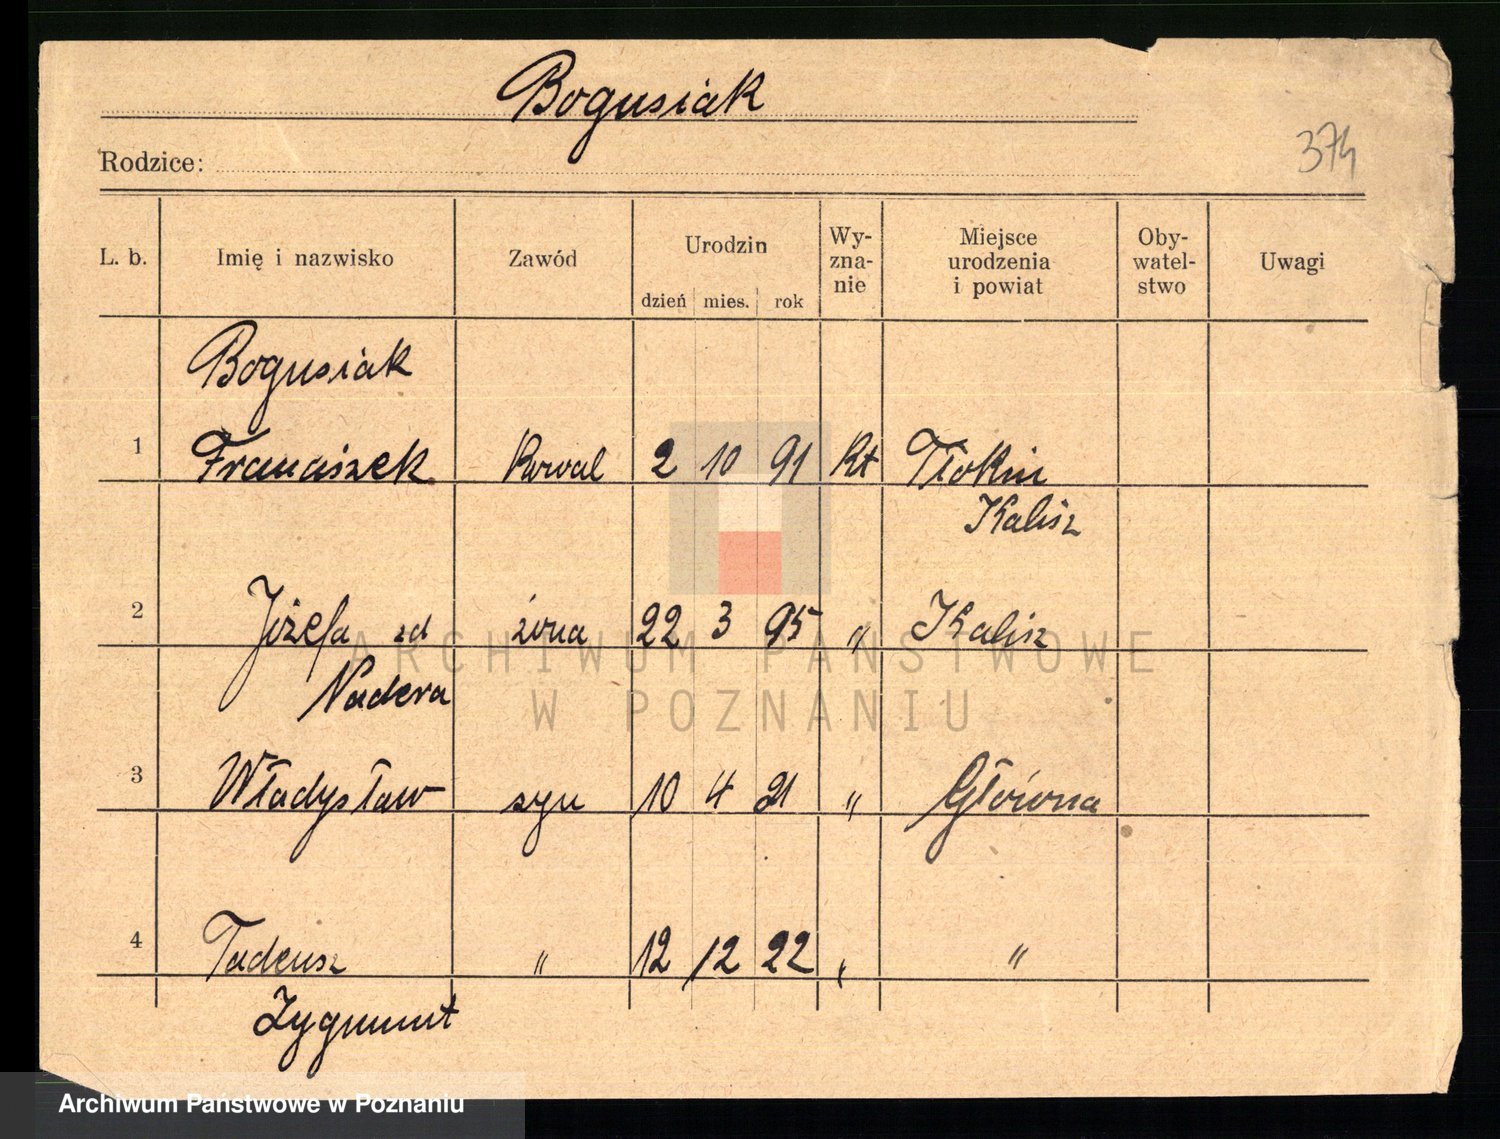 Bogusiak
Rodzice:
374
L. b. Imię i nazwisko Zawód Urodzin dzień mies. rok Wy-zna-nie Miejsce urodzenia i powiat Oby-watel-stwo Uwagi
Bogusiak
1 Franciszek Kowal 2 10 91 Kt Tłokin
Kalisz
2 Józefa zd żona 22 3 95 „ Kalisz
Nadera
3 Władysław syn 10 4 21 „ Główna
4 Tadeusz „ 12 12 22 „ „
Zygmunt
ARCHIWUM PAŃSTWOWE
W POZNANIU
Archiwum Państwowe w Poznaniu